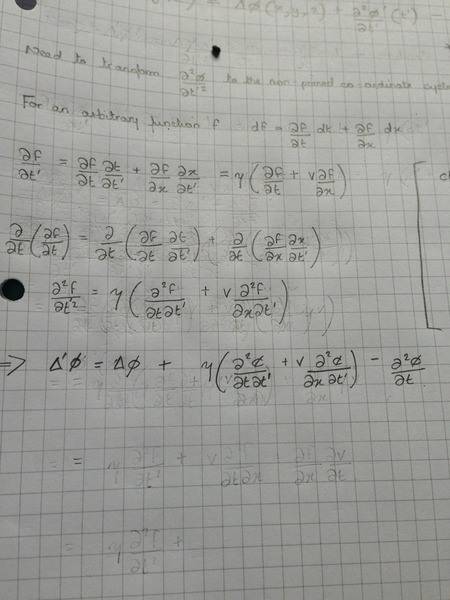 = Δφ(x,y,z) + ∂²φ'/∂t' (t') -
Need to transform ∂²φ/∂t'² to the non primed co-ordinate
For an arbitrary function f df = ∂f/∂t dt + ∂f/∂x dx
∂f/∂t' = ∂f/∂t ∂t/∂t' + ∂f/∂x ∂x/∂t' = γ(∂f/∂t + v∂f/∂x)
∂/∂t (∂f/∂t) = ∂/∂t (∂f/∂t ∂t/∂t') + ∂/∂t (∂f/∂x ∂x/∂t')
∂²f/∂t² = γ(∂²f/∂t∂t' + v ∂²f/∂x∂t')
=> Δ'φ' = Δφ + γ(∂²φ/∂t∂t' + v ∂²φ/∂x∂t') - ∂²φ/∂t